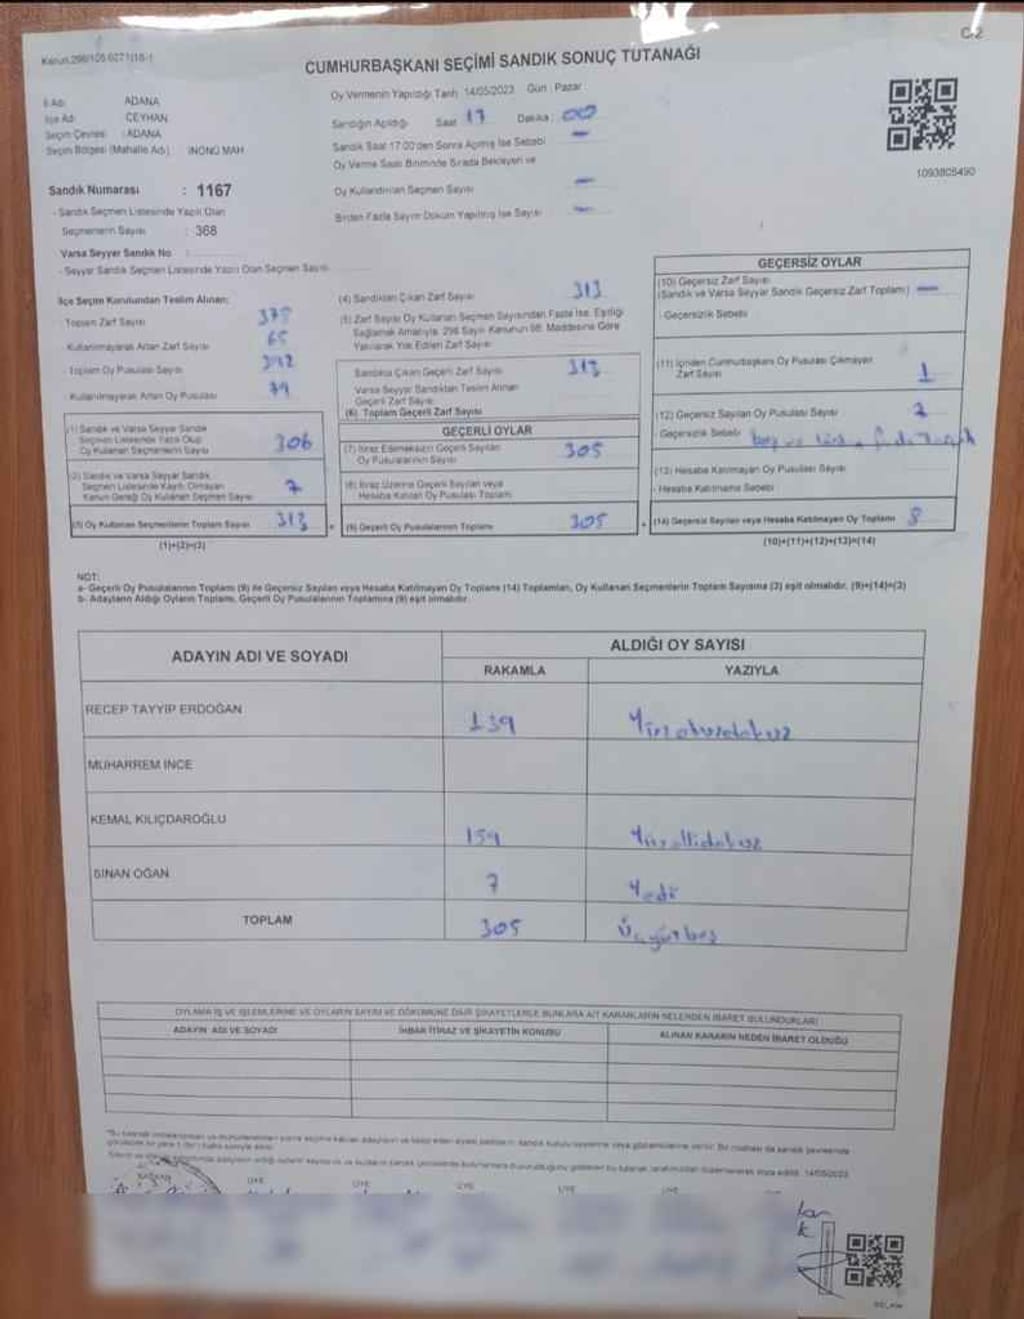 Kanun 298/105 6271/18-1
C-2
CUMHURBAŞKANI SEÇİMİ SANDIK SONUÇ TUTANAĞI
İl Adı: ADANA
İlçe Adı: CEYHAN
Seçim Çevresi : ADANA
Seçim Bölgesi (Mahalle Adı) İNÖNÜ MAH
Sandık Numarası : 1167
- Sandık Seçmen Listesinde Yazılı Olan
Seçmenlerin Sayısı : 368
Varsa Seyyar Sandık No :
- Seyyar Sandık Seçmen Listesinde Yazılı Olan Seçmen Sayısı
Oy Vermenin Yapıldığı Tarih 14/05/2023 Gün : Pazar
Sandığın Açıldığı Saat 17 Dakika : 00
Sandık Saat 17:00'den Sonra Açılmış İse Sebebi –
Oy Verme Saati Bitiminde Sırada Bekleyen ve
Oy Kullandırılan Seçmen Sayısı –
Birden Fazla Sayım Döküm Yapılmış İse Sayısı –
1093805490
İlçe Seçim Kurulundan Teslim Alınan:
- Toplam Zarf Sayısı
- Kullanılmayarak Artan Zarf Sayısı 65
- Toplam Oy Pusulası Sayısı
- Kullanılmayarak Artan Oy Pusulası
(1) Sandık ve Varsa Seyyar Sandık
Seçmen Listesinde Yazılı Olup
Oy Kullanan Seçmenlerin Sayısı 306
(2) Sandık ve Varsa Seyyar Sandık
Seçmen Listesinde Kayıtlı Olmayan
Kanun Gereği Oy Kullanan Seçmen Sayısı 7
(3) Oy Kullanan Seçmenlerin Toplam Sayısı 313
(1)+(2)=(3)
(4) Sandıktan Çıkan Zarf Sayısı 313
(5) Zarf Sayısı Oy Kullanan Seçmen Sayısından Fazla İse, Eşitliği
Sağlamak Amacıyla, 298 Sayılı Kanunun 98. Maddesine Göre
Yakılarak Yok Edilen Zarf Sayısı
Sandıkta Çıkan Geçerli Zarf Sayısı 313
Varsa Seyyar Sandıktan Teslim Alınan
Geçerli Zarf Sayısı
(6) Toplam Geçerli Zarf Sayısı
GEÇERLİ OYLAR
(7) İtiraz Edilmeksizin Geçerli Sayılan
Oy Pusulalarının Sayısı 305
(8) İtiraz Üzerine Geçerli Sayılan veya
Hesaba Katılan Oy Pusulası Toplamı
(9) Geçerli Oy Pusulalarının Toplamı 305
GEÇERSİZ OYLAR
(10) Geçersiz Zarf Sayısı
(Sandık ve Varsa Seyyar Sandık Geçersiz Zarf Toplamı) –
- Geçersizlik Sebebi
(11) İçinden Cumhurbaşkanı Oy Pusulası Çıkmayan
Zarf Sayısı 1
(12) Geçersiz Sayılan Oy Pusulası Sayısı
- Geçersizlik Sebebi
(13) Hesaba Katılmayan Oy Pusulası Sayısı
- Hesaba Katılmama Sebebi
(14) Geçersiz Sayılan veya Hesaba Katılmayan Oy Toplamı 8
(10)+(11)+(12)+(13)=(14)
NOT:
a- Geçerli Oy Pusulalarının Toplamı (9) ile Geçersiz Sayılan veya Hesaba Katılmayan Oy Toplamı (14) Toplamları, Oy Kullanan Seçmenlerin Toplam Sayısına (3) eşit olmalıdır. (9)+(14)=(3)
b- Adayların Aldığı Oyların Toplamı, Geçerli Oy Pusulalarının Toplamına (9) eşit olmalıdır.
ADAYIN ADI VE SOYADI ALDIĞI OY SAYISI
RAKAMLA YAZIYLA
RECEP TAYYİP ERDOĞAN 139 Yüzotuzdokuz
MUHARREM İNCE
KEMAL KILIÇDAROĞLU 159 Yüzellidokuz
SİNAN OĞAN 7 Yedi
TOPLAM 305 Üçyüzbeş
OYLAMA İŞ VE İŞLEMLERİNE VE OYLARIN SAYIM VE DÖKÜMÜNE DAİR ŞİKAYETLERLE BUNLARA AİT KARARLARIN NELERDEN İBARET BULUNDUKLARI
ADAYIN ADI VE SOYADI İHBAR İTİRAZ VE ŞİKAYETİN KONUSU ALINAN KARARIN NEDEN İBARET OLDUĞU
14/05/2023
BAŞKAN ÜYE ÜYE ÜYE ÜYE ÜYE